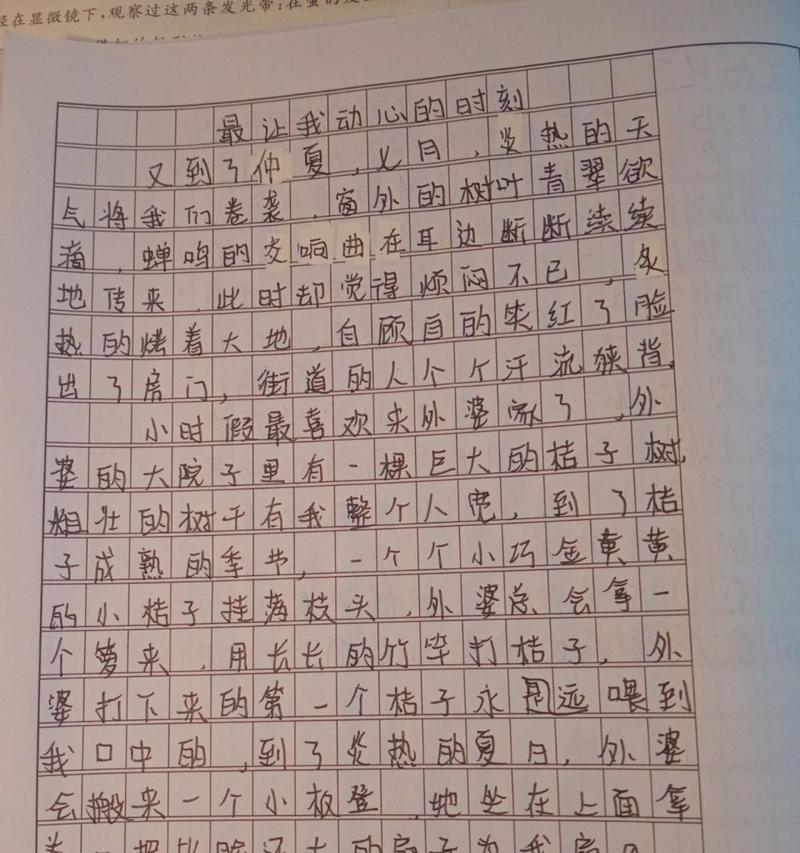 在显微镜下，观察过这两条发光带：在萤的
最让我动心的时刻
又到了仲夏，七月，炎热的天
气将我们卷袭，窗外的树叶青翠欲
滴，蝉鸣的交响曲在耳边断断续续
地传来，此时却觉得烦闷不已，炙
热的烤着大地，自顾自的笑红了脸
出了房门，街道的人个个汗流狭背，
小时假最喜欢来外婆家了，外
婆的大院子里有一棵巨大的桔子树，
粗壮的树干有我整个人宽，到了桔
子成熟的季节，一个个小巧金黄黄
的小桔子挂满枝头，外婆总会拿一
个箩来，用长长的竹竿打桔子，外
婆打下来的第一个桔子永远喂到
我口中的，到了炎热的夏日，外婆
会搬来一个小板登，她坐在上面拿
着一把比脸还大的扇子为我扇